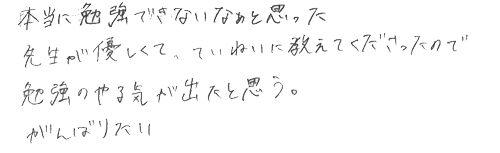 本当に勉強できないなぁと思った
先生が優しくて、ていねいに教えてくださったので
勉強のやる気が出たと思う。
がんばりたい